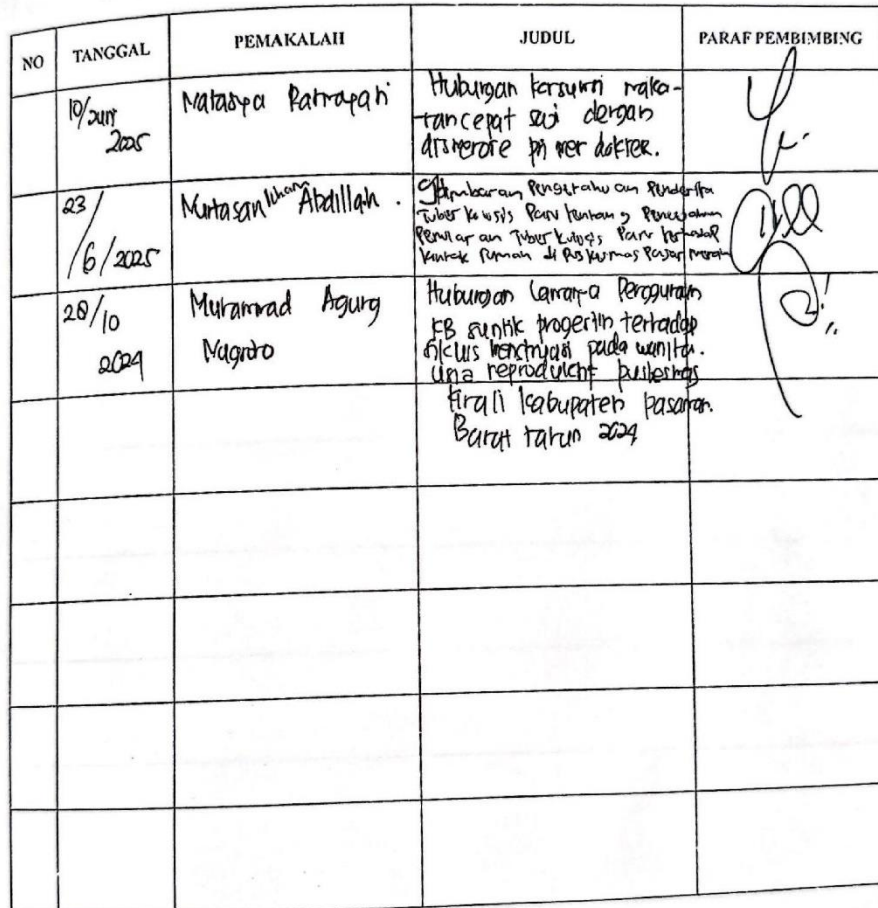 NO TANGGAL PEMAKALAH JUDUL PARAF PEMBIMBING
10/Juni 2025
Natasya
Hubungan konsumsi maka-
nan cepat saji dengan
dismenore
23/6/2025
Murtasan Ilham Abdillah.
Gambaran Pengetahuan Penderita
Tuberkulosis Paru tentang Pencegahan
Penularan Tuberkulosis Paru terhadap
kontak rumah di Puskesmas Pasar Merah
28/10 2024
Muhammad Agung
Nugroho
Hubungan Lamanya Penggunaan
KB suntik progestin terhadap
siklus menstruasi pada wanita.
usia reproduktif puskesmas
Kinali Kabupaten pasaman.
Barat tahun 2024